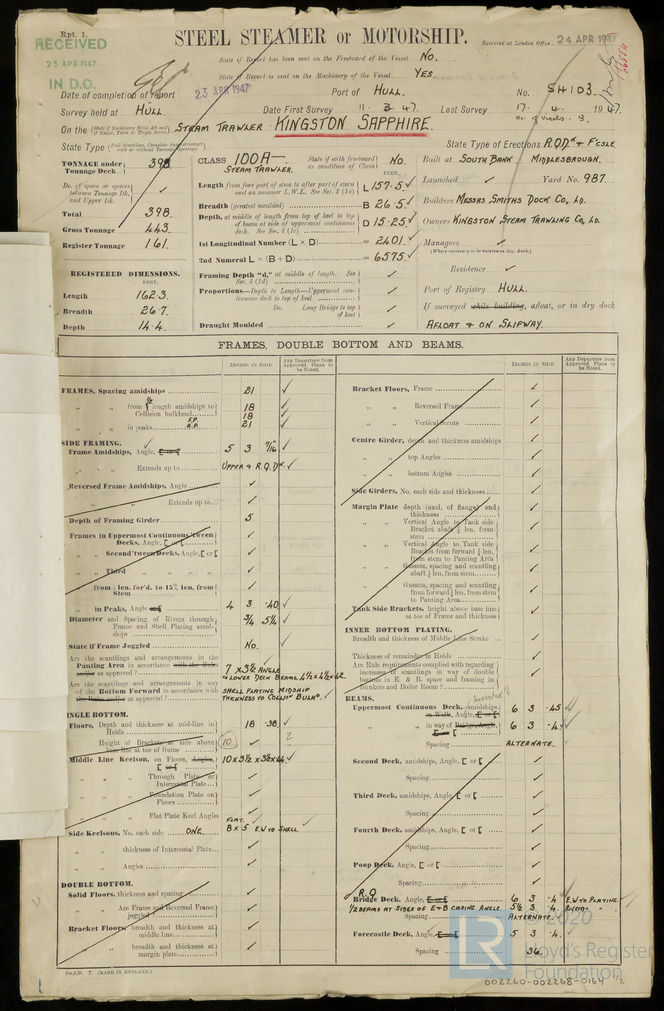 Rpt. 1.
STEEL STEAMER or MOTORSHIP.
RECEIVED
25 APR 1947
IN D.O.
Received at London Office 24 APR 1947
State if Report has been sent on the Freeboard of the Vessel No.
State if Report is sent on the Machinery of the Vessel YES.
Date of completion of report 23 APR 1947 Port of HULL. No. 54103.
Survey held at HULL Date First Survey 11. 3. 47. Last Survey 17. 4. 1947.
No. of visits - 8
On the STEAM TRAWLER KINGSTON SAPPHIRE.
State Type State Type of Erections R.QDK & F'CSLE
TONNAGE under Tonnage Deck 398
Do. of space or spaces between Tonnage Dk. and Upper Dk.
Total 398.
Gross Tonnage 443.
Register Tonnage 161.
REGISTERED DIMENSIONS.
FEET.
Length 162.3.
Breadth 26.7.
Depth 14.4.
CLASS 100A— State if with freeboard as condition of Class No.
STEAM TRAWLER.
FEET.
Length from fore part of stem to after part of stern post on summer L.W.L. See Sec. 3 (1a) L 157.5
Breadth (greatest moulded) B 26.5
Depth, at middle of length from top of keel to top of beam at side of uppermost continuous deck. See Sec. 3 (1c) D 15.25
1st Longitudinal Number (L × D) = 2401
2nd Numeral L × (B + D) = 6575
Framing Depth "d," at middle of length. See Sec. 3 (1d)
Proportions—Depth to Length—Uppermost continuous deck to top of keel
Do. Long Bridge to top of keel
Draught Moulded
Built at SOUTH BANK MIDDLESBROUGH.
Launched Yard No. 987.
Builders MESSRS SMITHS DOCK CO, LD.
Owners KINGSTON STEAM TRAWLING CO, LD.
Managers
Residence
Port of Registry HULL.
If surveyed while building, afloat, or in dry dock
AFLOAT & ON SLIPWAY.
FRAMES, DOUBLE BOTTOM AND BEAMS.
INCHES IN SHIP. Any Departure from Approved Plans to be Noted.
FRAMES, Spacing amidships 21
" " from length amidships to Collision bulkhead 18
" " in peaks F.P. 18 A.P. 21
SIDE FRAMING.
Frame Amidships, Angle, 5 3 7/16
" " Extends up to UPPER & R.Q.DK
Reversed Frame Amidships, Angle
" " Extends up to
Depth of Framing Girder 5
Frames in Uppermost Continuous 'tween Decks, Angle, [ or [
" Second 'tween Decks, Angle, [ or [
" Third " "
" from ⅕ len. for'd. to 15% len. from Stem
" in Peaks, Angle or [ 4 3 .40
Diameter and Spacing of Rivets through Frame and Shell Plating amidships 3/4 5¼
State if Frame Joggled No.
Are the scantlings and arrangements in the Panting Area in accordance with the Rules and/or as approved? 7 × 3½ ANGLE TO LOWER DECK BEAMS 4½×4½×.42
Are the scantlings and arrangements in way of the Bottom Forward in accordance with the Rules and/or as approved? SHELL PLATING MIDSHIP THICKNESS TO COLLION BULKD
SINGLE BOTTOM.
Floors, Depth and thickness at mid-line in Holds 18 .38
Height of Brackets at side above base line at toe of frame 10 ?
Middle Line Keelson, on Floors, Angles, [ or [ 10 × 3½ × 3½ × .44
" " Through Plate or Intercostal Plate
" " Foundation Plate on Floors
" " Flat Plate Keel Angles
Side Keelsons, No. each side ONE FLAT 8 × 5 E.W TO SHELL
" " thickness of Intercostal Plate
" " Angles
DOUBLE BOTTOM.
Solid Floors, thickness and spacing
" " Are Frame and Reversed Frame joggled
Bracket Floors, breadth and thickness at middle line
" " breadth and thickness at margin plate
INCHES IN SHIP. Any Departure from Approved Plans to be Noted.
Bracket Floors, Frame
" " Reversed Frame
" " Vertical Struts
Centre Girder, depth and thickness amidships
" " top Angles
" " bottom Angles
Side Girders, No. each side and thickness
Margin Plate depth (excl. of flange) and thickness
" " Vertical Angle to Tank side Bracket abaft ¼ len. from stem
" " Vertical Angle to Tank side Bracket from forward ¼ len. from stem to Panting Area
" " Gussets, spacing and scantling abaft ¼ len. from stem
" " Gussets, spacing and scantling from forward ¼ len. from stem to Panting Area
Tank Side Brackets, height above base line at toe of Frame and thickness
INNER BOTTOM PLATING.
Breadth and thickness of Middle Line Strake
Thickness of remainder in Holds
Are Rule requirements complied with regarding increase of scantlings in way of double bottom in E. & B. space and framing in Bunkers and Boiler Room?
BEAMS.
Uppermost Continuous Deck, amidships in Wells, Angle, 6 3 .45
" " in way of Bridge, Angle, 6 3 .4
Spacing ALTERNATE.
Second Deck, amidships, Angle, [ or [
Spacing
Third Deck, amidships, Angle, [ or [
Spacing
Fourth Deck, amidships, Angle, [ or [
Spacing
Poop Deck, Angle, [ or [
Spacing
R.Q Bridge Deck, Angle, 6 3 .4 E.W TO PLATING.
½ BEAMS AT SIDES OF E+B CASING ANGLE 5½ 3 .4
Spacing ALTERNATE.
Forecastle Deck, Angle, 5 3 .4
Spacing 36.
(MADE IN ENGLAND.)
LR
© 2020
Lloyd's Register
Foundation
002260-002268-0164 1/2